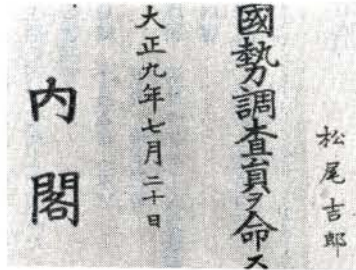 松尾吉郎
國勢調査員ヲ命ス
大正九年七月二十日
内閣